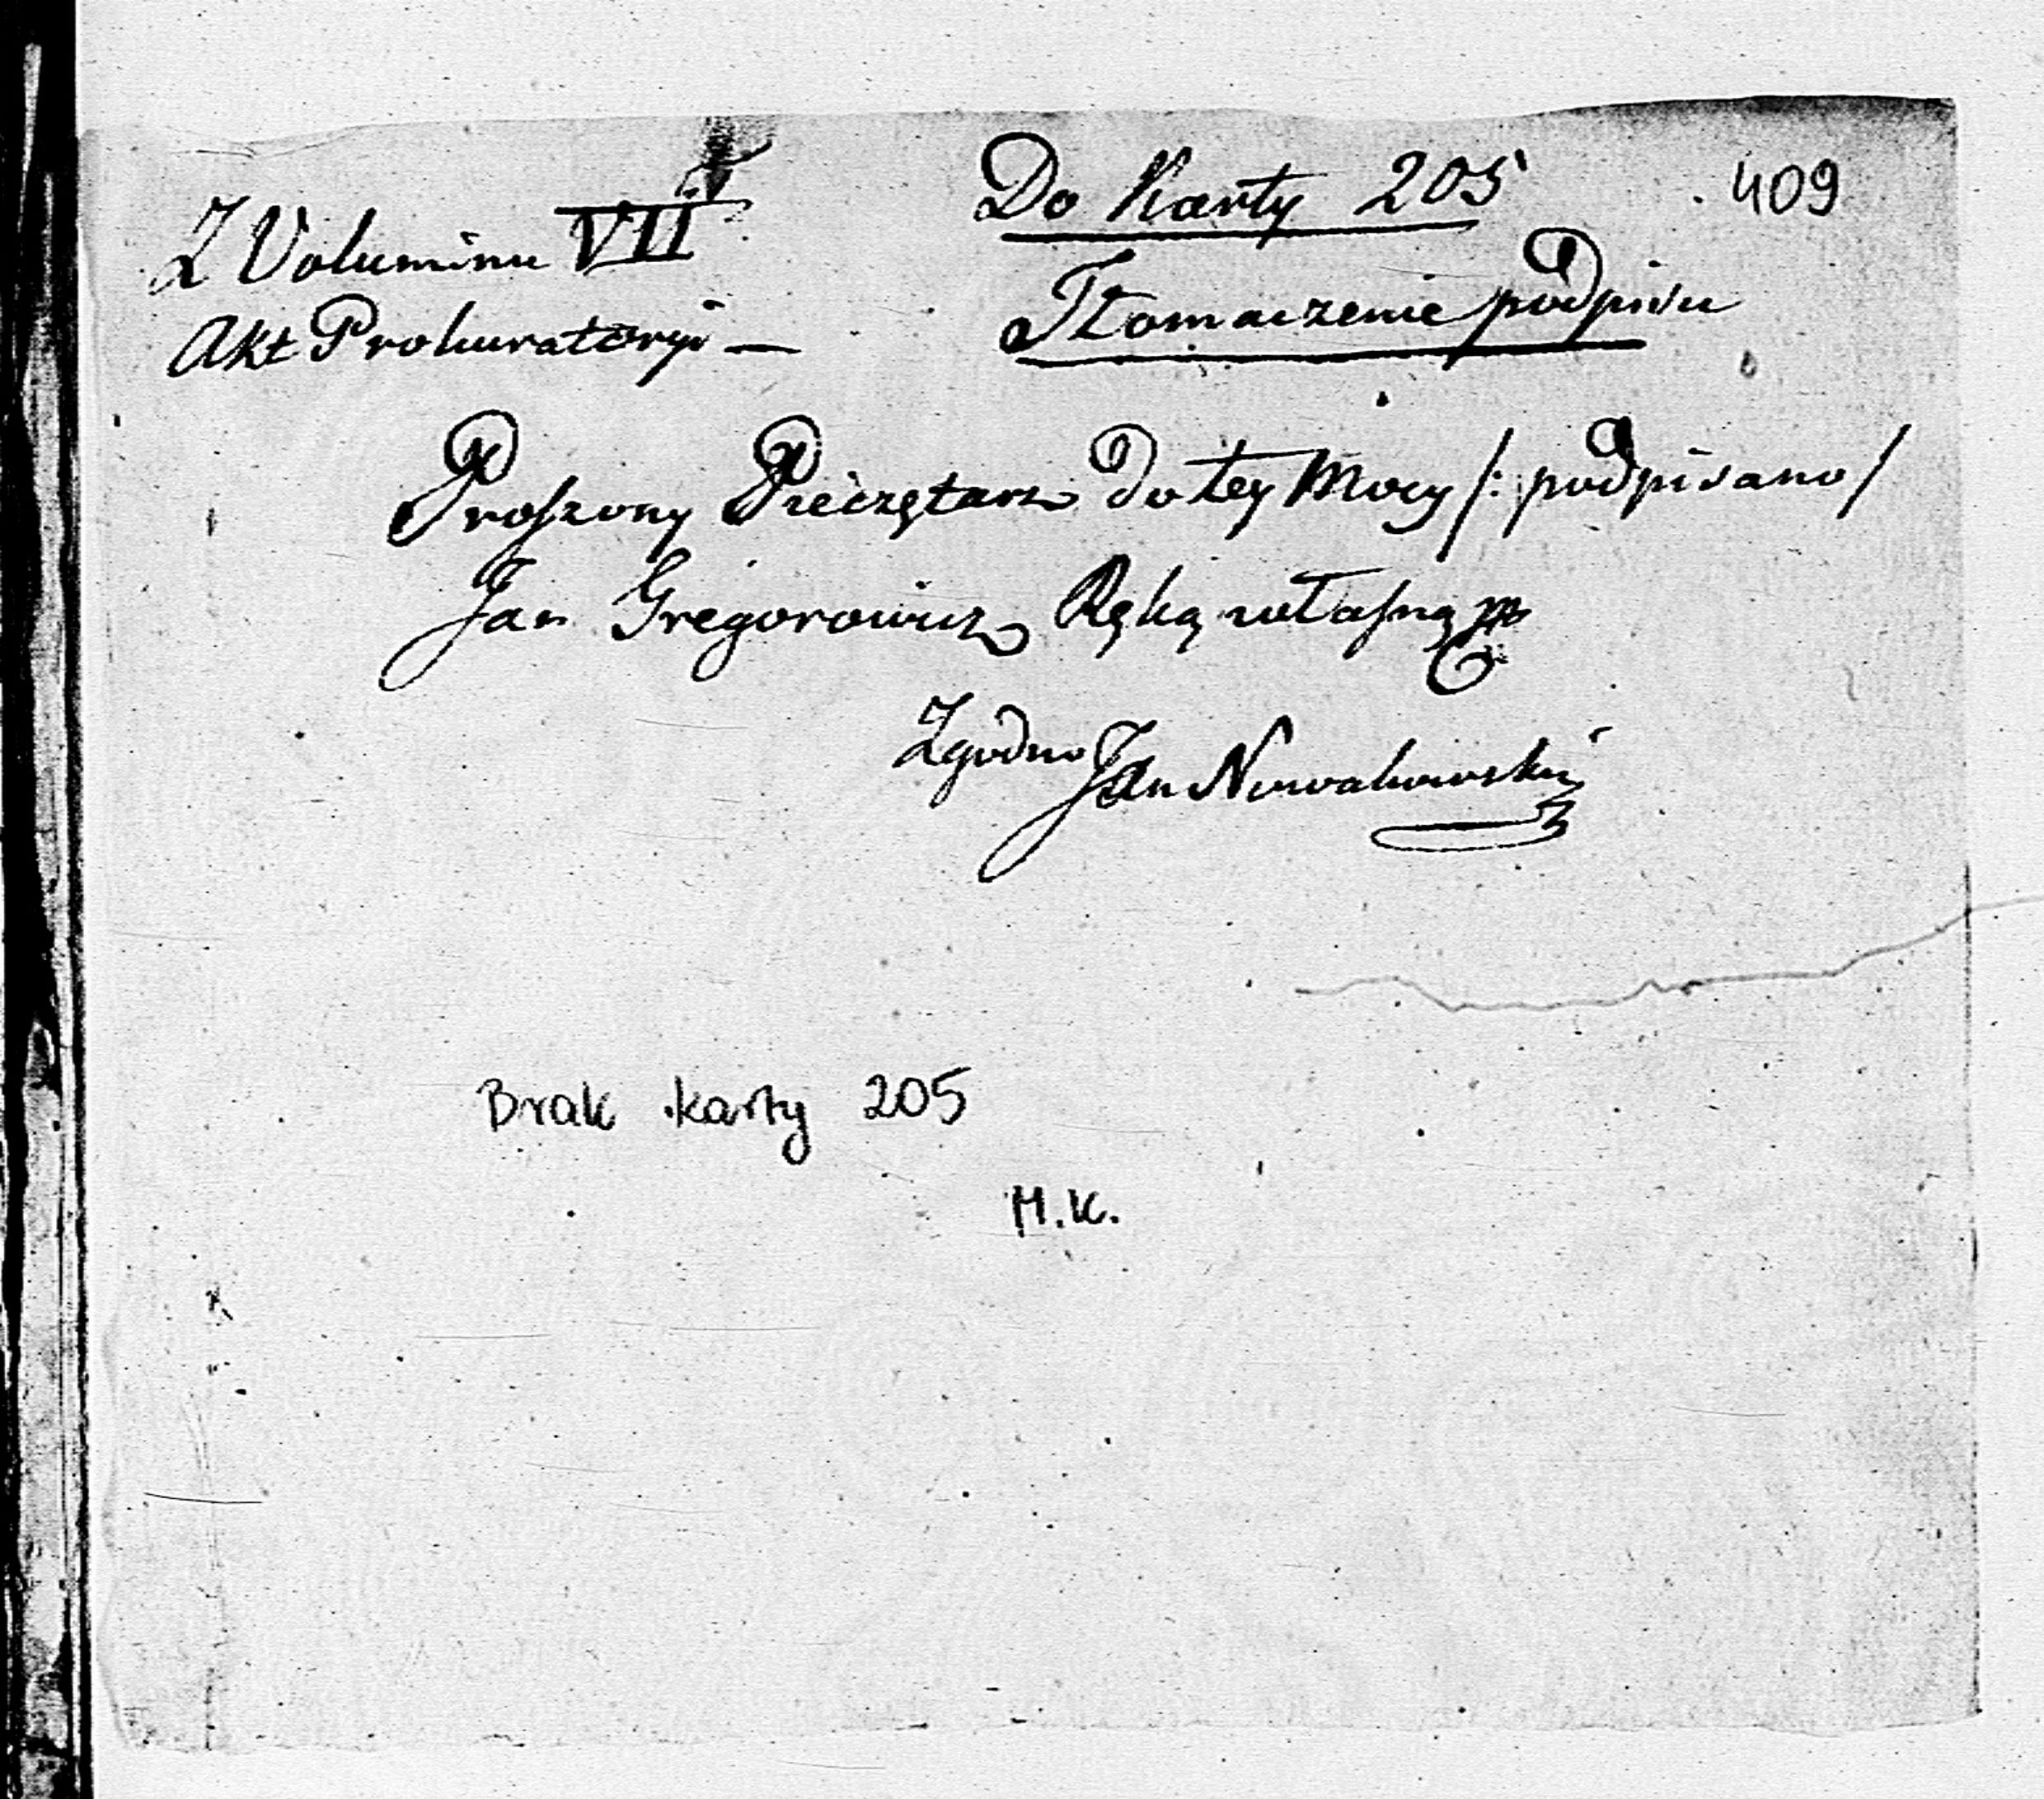 Do Karty 205
409
Z Voluminu VII
Akt Prokuratoryi —
Tłomaczenie podpisu
Proszony Pieczętarz do tey Mocy /: podpisano /
Jan Gregorowicz Ręką własną mp
Zgodno Jan Nowakowski
Brak karty 205
M.K.